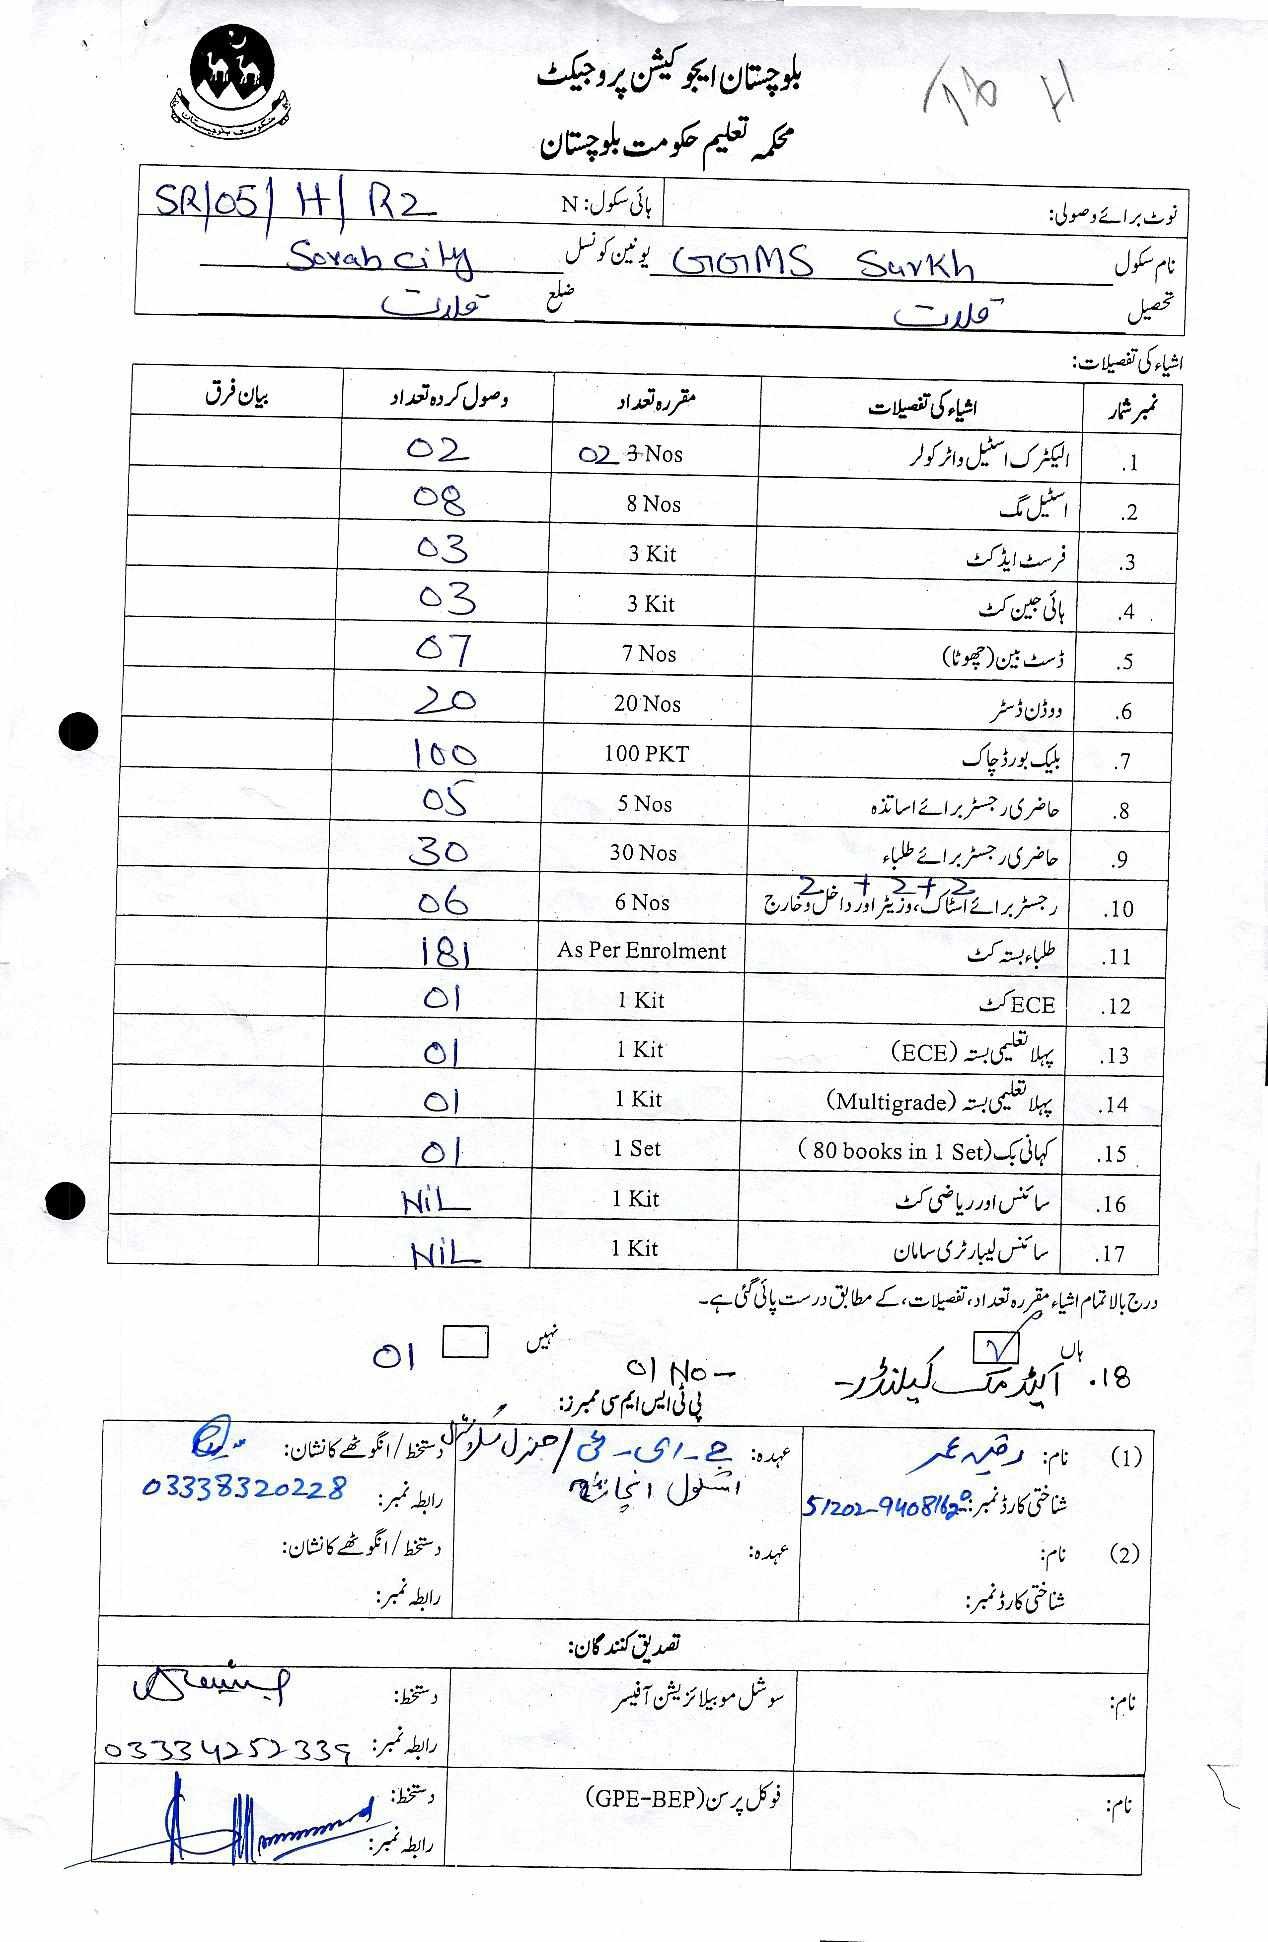 بلوچستان ایجوکیشن پروجیکٹ
محکمہ تعلیم حکومت بلوچستان
حکومت بلوچستان
نوٹ برائے وصولی: ہائی سکول: N SR/05/H/R2
نام سکول GGMS Surkh یونین کونسل Sorab City
تحصیل قلات ضلع قلات
اشیاء کی تفصیلات:
نمبر شمار اشیاء کی تفصیلات مقررہ تعداد وصول کردہ تعداد بیان فرق
1. الیکٹرک اسٹیل واٹر کولر 02 3 Nos 02
2. اسٹیل مگ 8 Nos 08
3. فرسٹ ایڈ کٹ 3 Kit 03
4. ہائی جین کٹ 3 Kit 03
5. ڈسٹ بین (چھوٹا) 7 Nos 07
6. ووڈن ڈسٹر 20 Nos 20
7. بلیک بورڈ چاک 100 PKT 100
8. حاضری رجسٹر برائے اساتذہ 5 Nos 05
9. حاضری رجسٹر برائے طلباء 30 Nos 30
2 + 2 + 2
10. رجسٹر برائے اسٹاک، وزیٹر اور داخل و خارج 6 Nos 06
11. طلباء بستہ کٹ As Per Enrolment 181
12. ECE کٹ 1 Kit 01
13. پہلا تعلیمی بستہ (ECE) 1 Kit 01
14. پہلا تعلیمی بستہ (Multigrade) 1 Kit 01
15. کہانی بک (80 books in 1 Set) 1 Set 01
16. سائنس اور ریاضی کٹ 1 Kit NiL
17. سائنس لیبارٹری سامان 1 Kit NiL
درج بالا تمام اشیاء مقررہ تعداد، تفصیلات، کے مطابق درست پائی گئی ہے۔
ہاں نہیں
18. کیلنڈر- 01 No- 01
پی ٹی ایس ایم سی ممبرز:
(1) نام: عہدہ: جے-ای-ٹی / دستخط/انگوٹھے کا نشان:
شناختی کارڈ نمبر: اسکول انچارج رابطہ نمبر: 03338320228
(2) نام: عہدہ: دستخط/انگوٹھے کا نشان:
شناختی کارڈ نمبر: رابطہ نمبر:
تصدیق کنندگان:
نام: سوشل موبیلائزیشن آفیسر دستخط:
رابطہ نمبر: 03334252339
نام: فوکل پرسن (GPE-BEP) دستخط:
رابطہ نمبر: